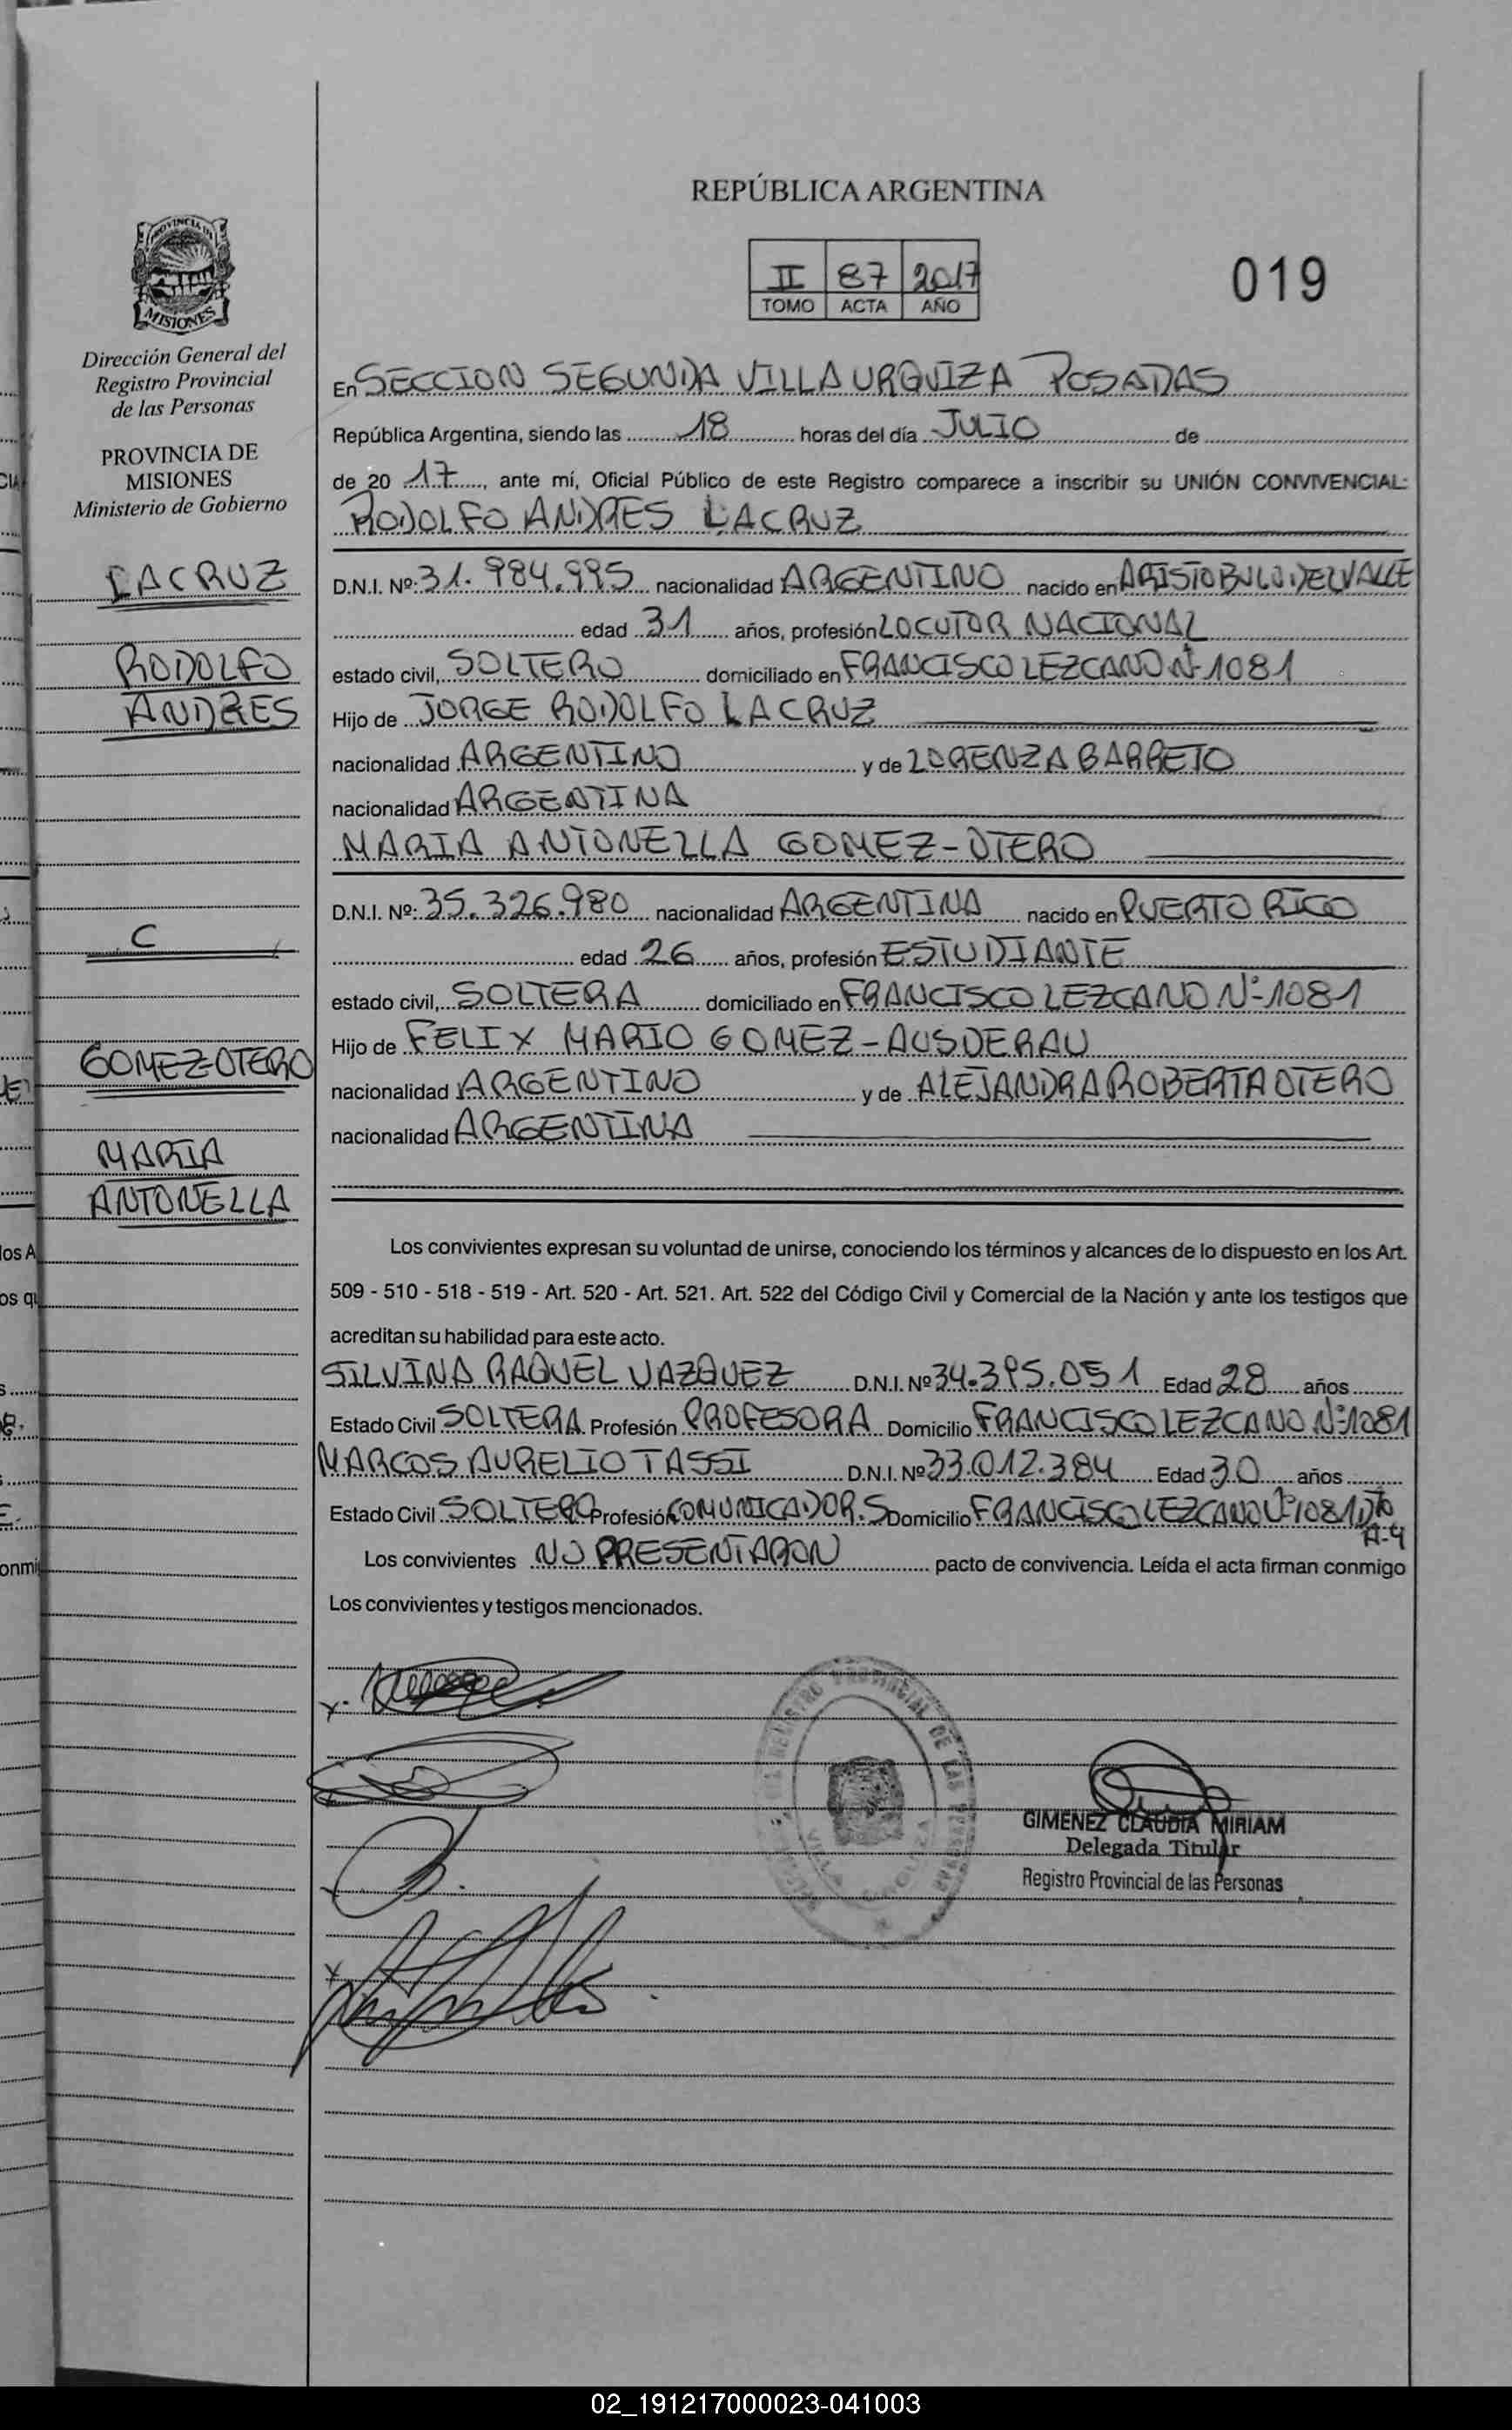 REPÚBLICA ARGENTINA
II 87 2017
TOMO ACTA AÑO
019
PROVINCIA DE
MISIONES
Dirección General del
Registro Provincial
de las Personas
PROVINCIA DE
MISIONES
Ministerio de Gobierno
LACRUZ
RODOLFO
ANDRES
C
GOMEZ-OTERO
MARIA
ANTONELLA
En SECCION SEGUNDA VILLA URQUIZA POSADAS
República Argentina, siendo las 18 horas del día JULIO de
de 20 17, ante mí, Oficial Público de este Registro comparece a inscribir su UNIÓN CONVIVENCIAL:
RODOLFO ANDRES LACRUZ
D.N.I. Nº: 31.984.995 nacionalidad ARGENTINO nacido en ARISTOBULO DEL VALLE
edad 31 años, profesión LOCUTOR NACIONAL
estado civil, SOLTERO domiciliado en FRANCISCO LEZCANO Nº 1081
Hijo de JORGE RODOLFO LACRUZ
nacionalidad ARGENTINO y de LORENZA BARRETO
nacionalidad ARGENTINA
MARIA ANTONELLA GOMEZ-OTERO
D.N.I. Nº: 35.326.980 nacionalidad ARGENTINA nacido en PUERTO RICO
edad 26 años, profesión ESTUDIANTE
estado civil, SOLTERA domiciliado en FRANCISCO LEZCANO Nº 1081
Hijo de FELIX MARIO GOMEZ-AUSDERAU
nacionalidad ARGENTINO y de ALEJANDRA ROBERTA OTERO
nacionalidad ARGENTINA
Los convivientes expresan su voluntad de unirse, conociendo los términos y alcances de lo dispuesto en los Art.
509 - 510 - 518 - 519 - Art. 520 - Art. 521. Art. 522 del Código Civil y Comercial de la Nación y ante los testigos que
acreditan su habilidad para este acto.
SILVINA RAQUEL VAZQUEZ D.N.I. Nº 34.395.051 Edad 28 años
Estado Civil SOLTERA Profesión PROFESORA Domicilio FRANCISCO LEZCANO Nº 1081
MARCOS AURELIO TASSI D.N.I. Nº 33.012.384 Edad 30 años
Estado Civil SOLTERO Profesión COMUNICADOR.S Domicilio FRANCISCO LEZCANO Nº 1081 DTO
A-4
Los convivientes NO PRESENTARON pacto de convivencia. Leída el acta firman conmigo
Los convivientes y testigos mencionados.
REGISTRO PROVINCIAL DE LAS PERSONAS
VILLA URQUIZA
GIMENEZ CLAUDIA MIRIAM
Delegada Titular
Registro Provincial de las Personas
02_191217000023-041003